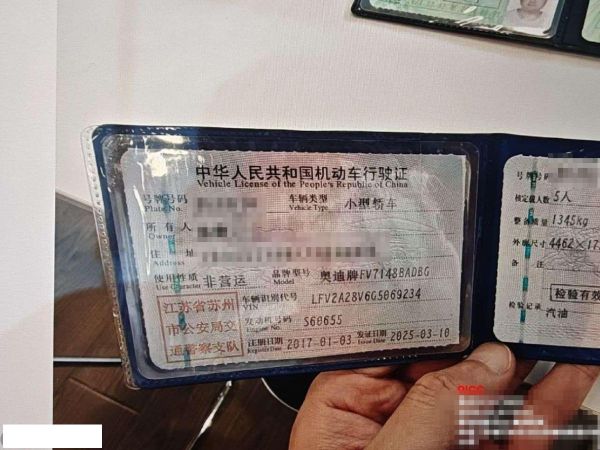 中华人民共和国机动车行驶证
Vehicle License of the People's Republic of China
号牌号码 车辆类型 小型轿车
Plate No. Vehicle Type
所有人
Owner
住址
Address
使用性质 非营运 品牌型号 奥迪牌FV7148BADBG
Use Character Model
江苏省苏州
市公安局交
通警察支队
车辆识别代号 LFV2A28V6G5069234
VIN
发动机号码 S60655
Engine No.
注册日期 2017-01-03 发证日期 2025-03-10
Register Date Issue Date
号牌号码
核定载人数 5人
整备质量 1345kg
外廓尺寸 4462×17
检验有效
检验记录
汽油
PICC